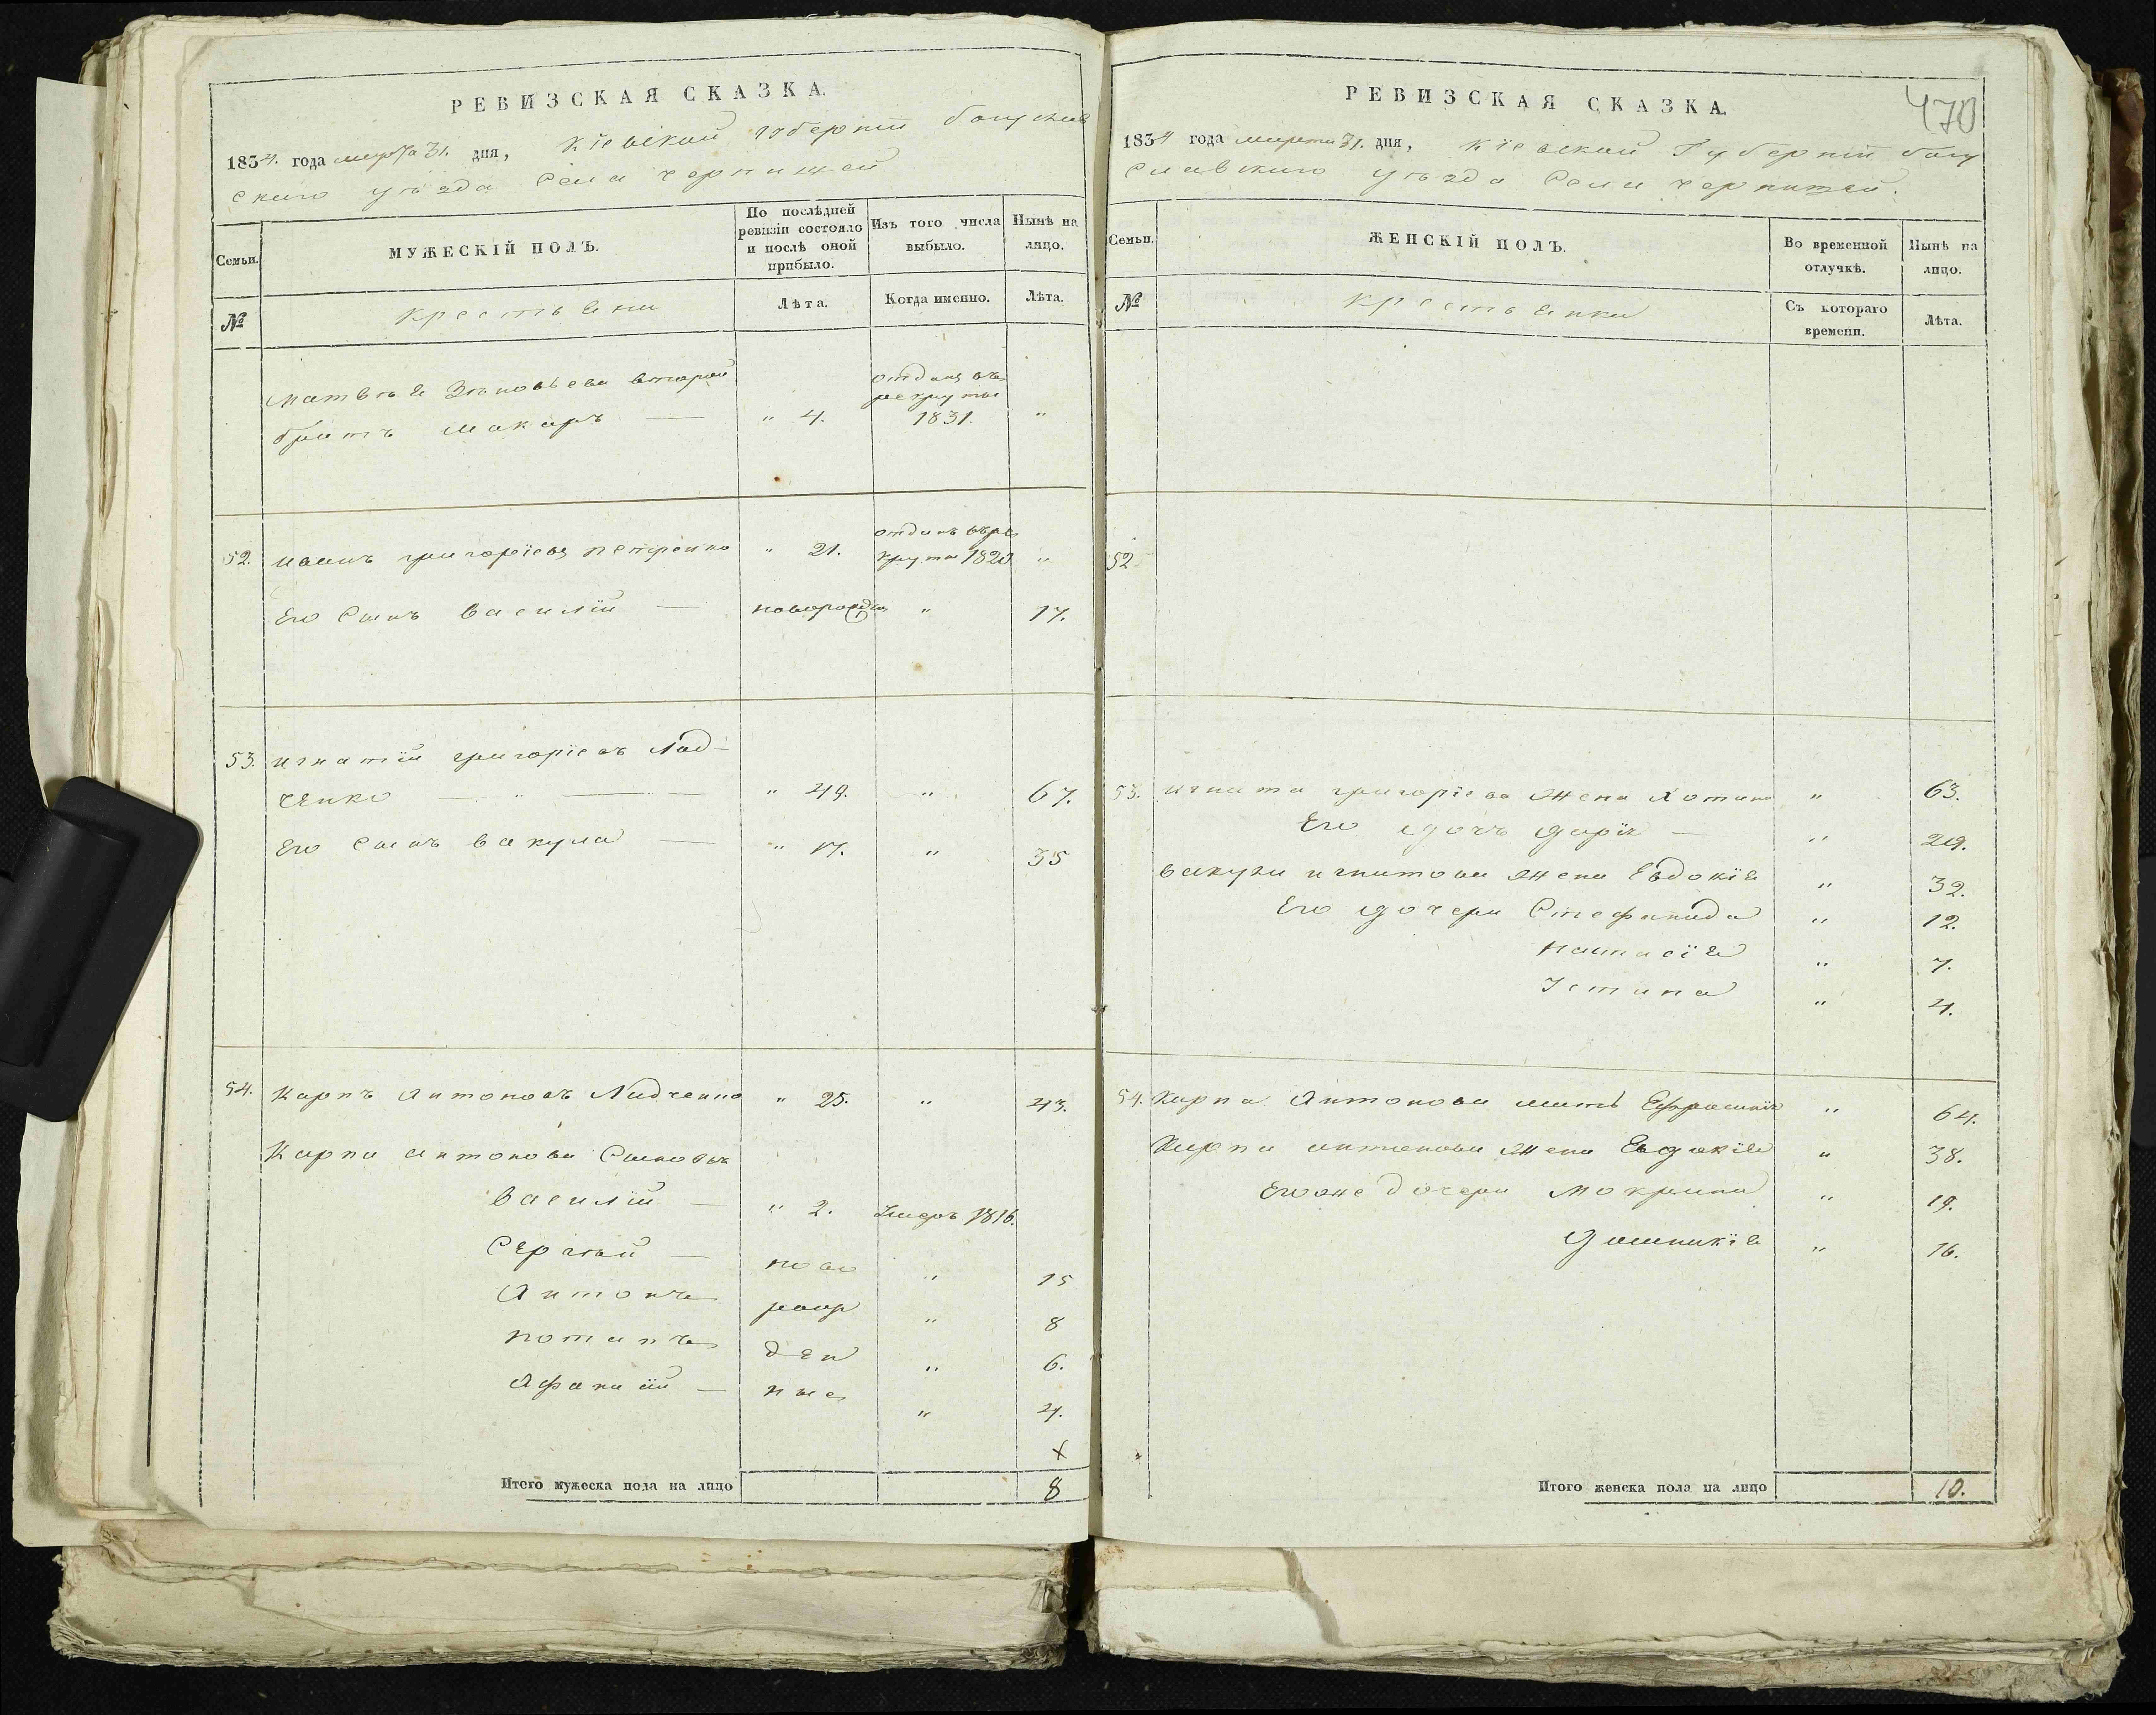 РЕВИЗСКАЯ СКАЗКА.
1834. года марта 31. дня, Кіевской губерніи богуслав
скаго уѣзда Села чернишей
Семьи.
МУЖЕСКІЙ ПОЛЪ.
По послѣдней ревизіи состояло и послѣ оной прибыло.
Изъ того числа выбыло.
Нынѣ на лицо.
№
крестьяни
Лѣта.
Когда именно.
Лѣта.
Матвѣя Зѣновьева второй отданъ въ рекруты
братъ Макаръ — " 4. 1831. "
52. иванъ григоріевъ петренко " 21. отданъ врѣ
круты 1820 "
Его Сынъ василій — новорожден " 17.
53. игнатій григоріевъ Лад-
ченко — " — " 49. " 67.
Его Сынъ вакула — " 17. " 35
54. Карпъ Антоновъ Ладченко " 25. " 43.
Карпа антонова Сыновья
василій — " 2. Умеръ 1816.
Сергѣй — ново " 15
Антонъ рожд " 8
потапъ ден " 6.
Афанасій — ные " 4.
х
Итого мужеска пола на лицо 8
470
РЕВИЗСКАЯ СКАЗКА.
1834 года марта 31. дня, Кіевской Губерніи богу
Славскаго уѣзда Села чернишей.
Семьи.
ЖЕНСКІЙ ПОЛЪ.
Во временной отлучкѣ.
Нынѣ на лицо.
№
крестьянки
Съ котораго времени.
Лѣта.
52
53. игната григоріева жена Хотина " 63.
Его дочь дарія — " 29.
вакулы игнатова жена Евдокія " 32.
Его дочери Стефанида " 12.
настасія " 7.
Устина " 4.
54. Карпа Антонова мать Ефросинія " 64.
Карпа антонова жена Евдокія " 38.
Егоже дочери Мокрина " 19.
Домникія " 16.
Итого женска пола на лицо 10.